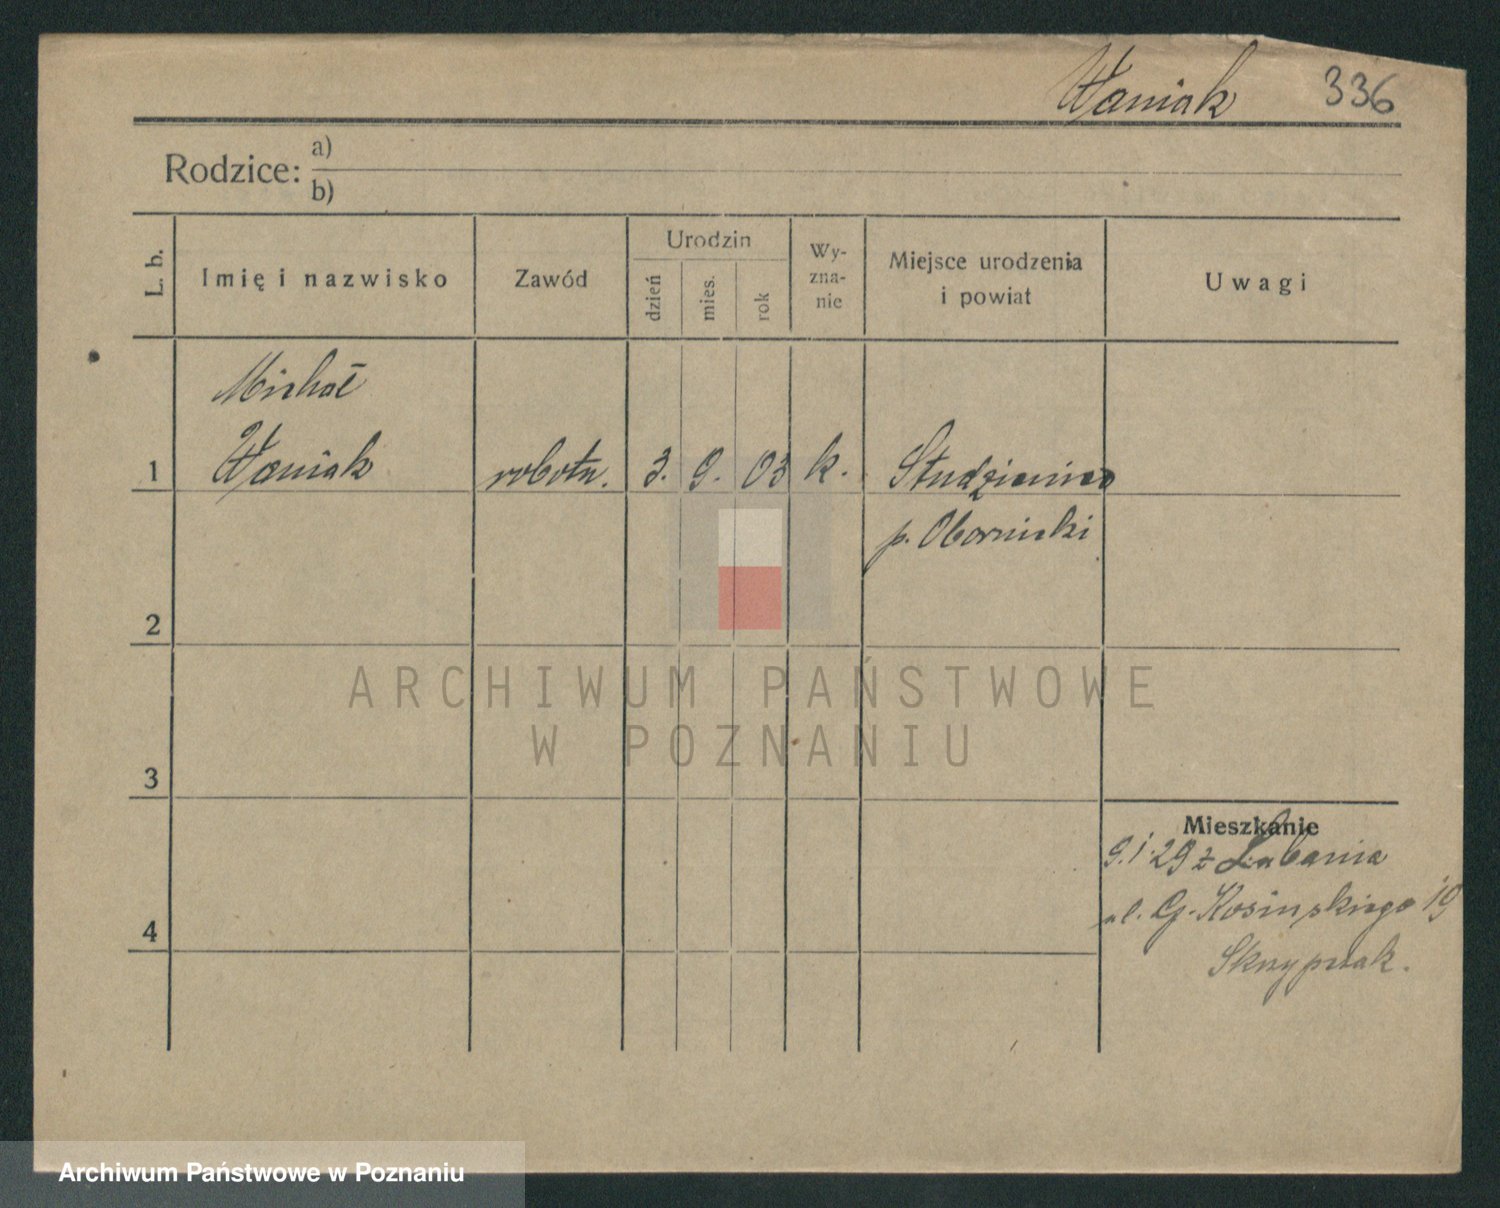 Waniak 336
Rodzice: a)
b)
L. b. Imię i nazwisko Zawód Urodzin dzień mies. rok Wy-zna-nie Miejsce urodzenia i powiat Uwagi
Michał
1 Waniak robotn. 3. 9. 03 k. Studzieniec
p. Obornicki
2
ARCHIWUM PAŃSTWOWE
W POZNANIU
3
Mieszkanie
9.1.29 z Lubania
ul. G. Kosińskiego 19
4
Skrzypczak.
Archiwum Państwowe w Poznaniu